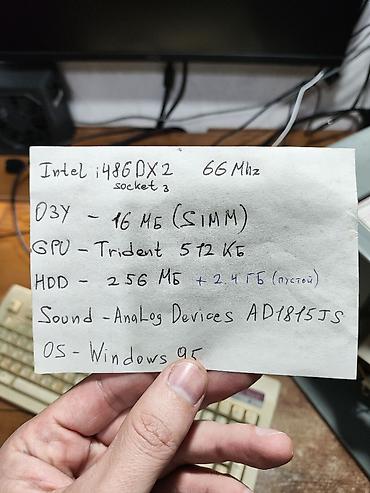 Intel i486DX2 66Mhz
socket 3
ОЗУ - 16 МБ (SIMM)
GPU - Trident 512 КБ
HDD - 256 МБ + 2.4 ГБ (пустой)
Sound - Analog Devices AD1815JS
OS - Windows 95